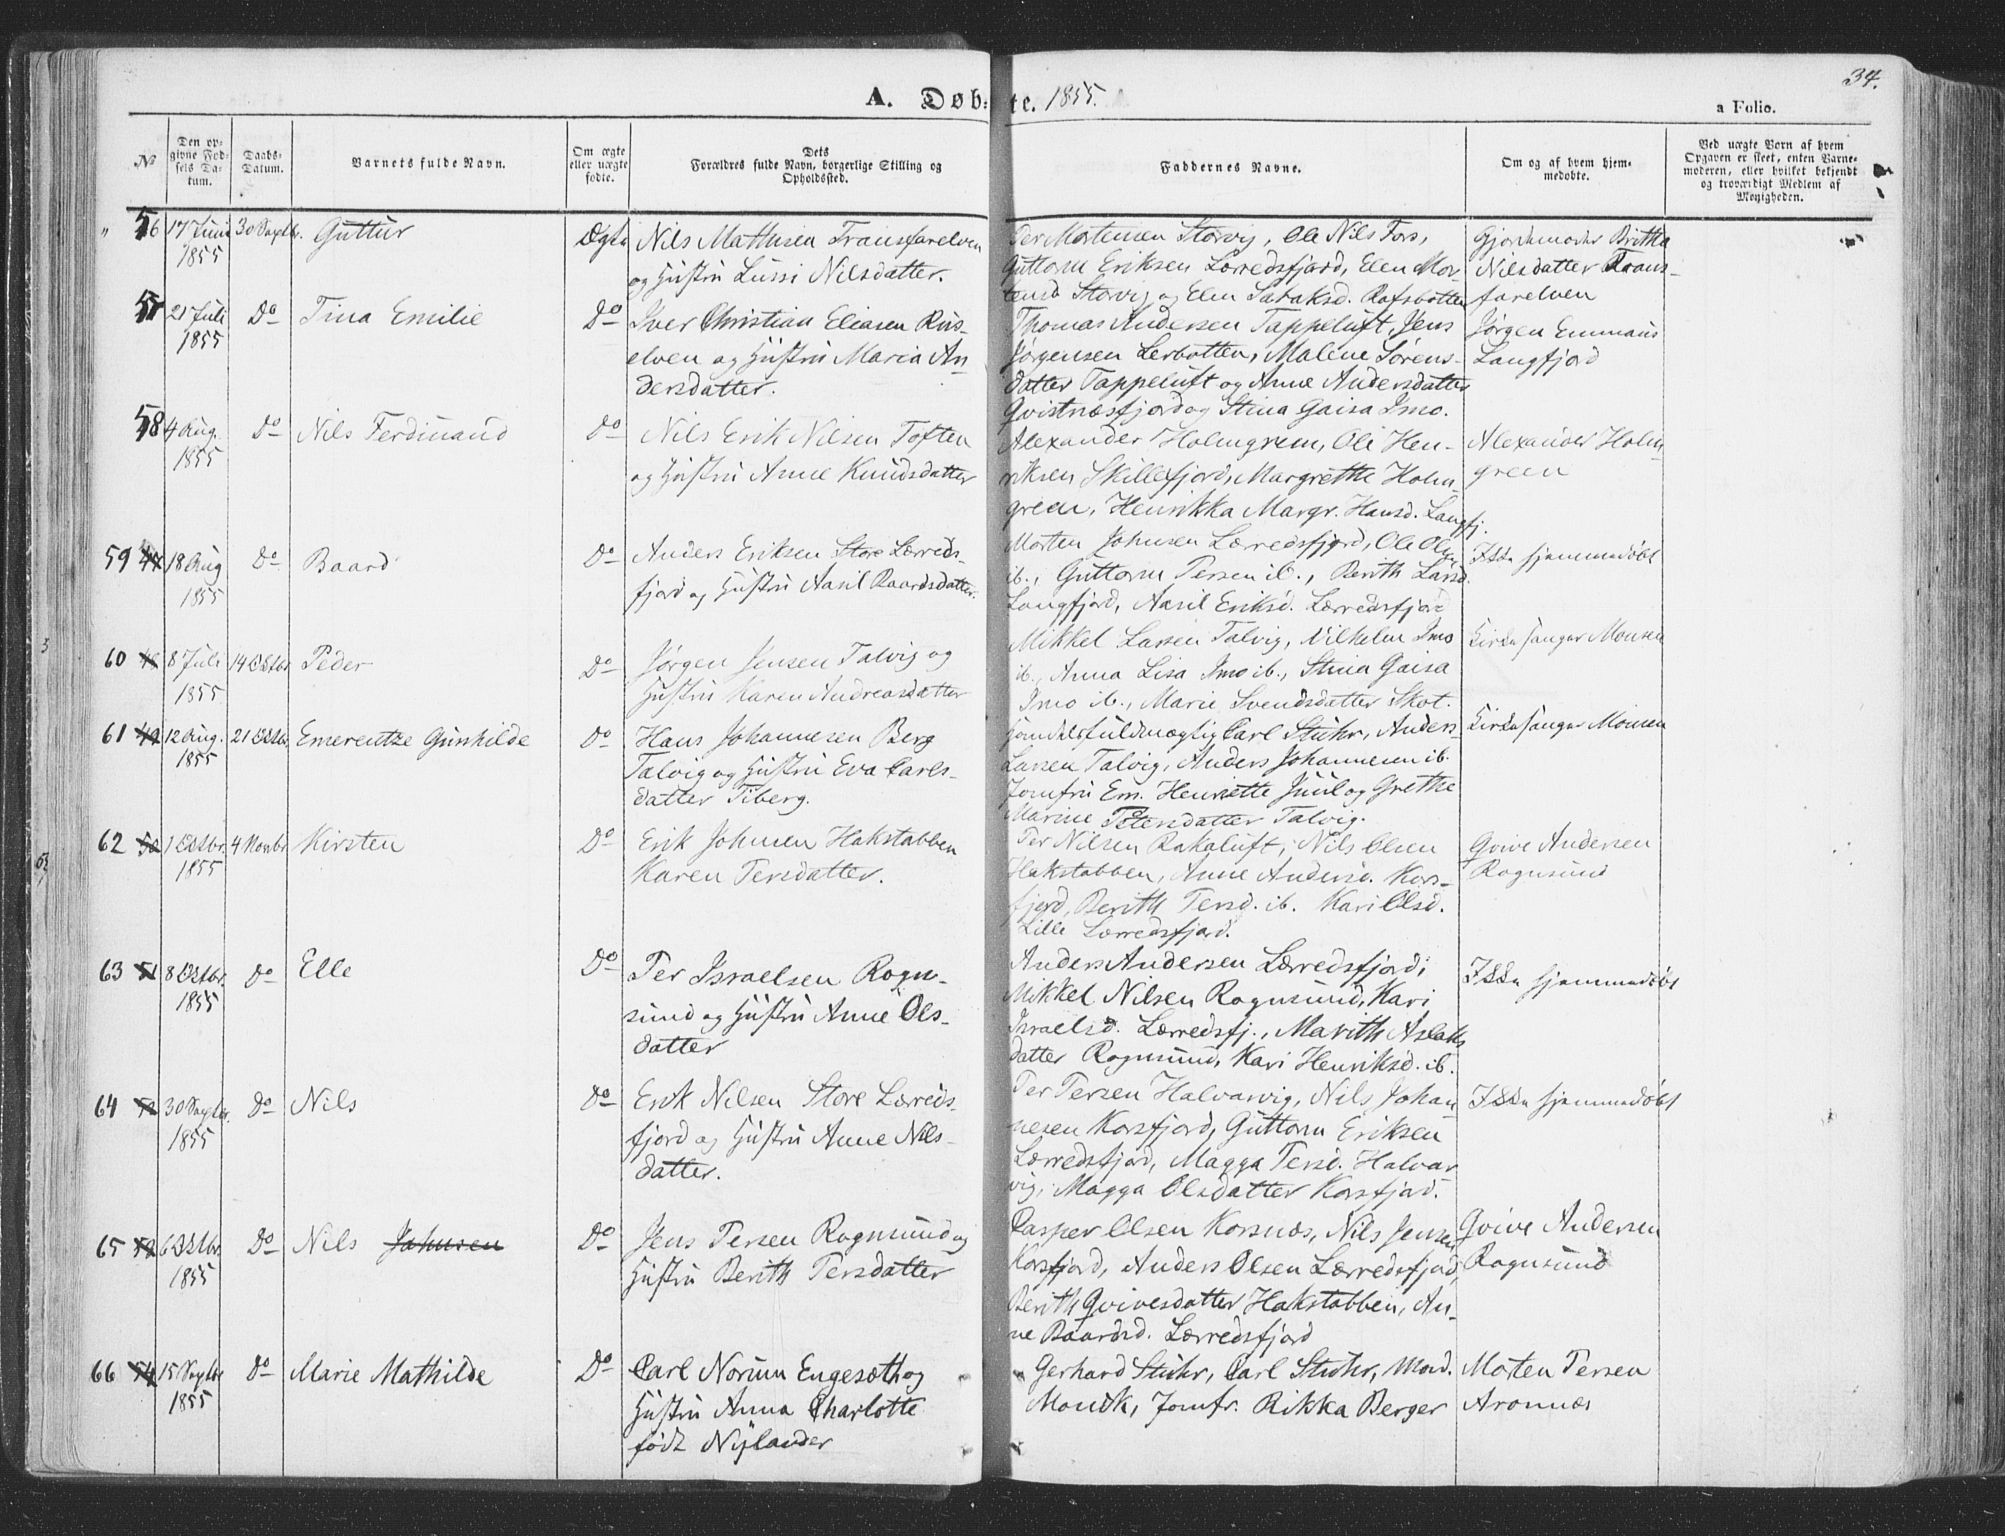 34.
A. Døbte. 1855.
a Folio.
No
Den opgivne Fødsels Datum.
Daabs-Datum.
Barnets fulde Navn.
Om ægte eller uægte fødte.
Dets Forældres fulde Navn, borgerlige Stilling og Opholdssted.
Faddernes Navne.
Om og af hvem hjemmedøbte.
Ved uægte Børn af hvem Opgaven er skeet, enten Barnemoderen, eller hvilket bekjendt og troværdigt Medlem af Menigheden.
56 17 Juni 1855 30 Septbr. Guttur Ægte
Nils Mathisen Transfarelven
og Hustru Lussi Nilsdatter.
Per Mortensen Storvig, Ole Nils Fors,
Guttorm Eriksen Lerredsfjord, Elen Mor-
tensd. Storvig og Elen Sabaksd. Rafsbotten
Gjordemoder Britha
Nilsdatter Trans-
farelven
57 21 Juli 1855 Do Tina Emilie Do
Iver Christian Eliasen Rus-
elven og Hustru Maria An-
dersdatter.
Thomas Andersen Tappeluft, Jens
Jørgensen Lerbotten, Malene Sørens-
datter Tappeluft og Anne Andersdatter
Qvistnæsfjord og Stina Gaisa Imo.
Jørgen Emmaus
Langfjord
58 4 Aug. 1855 Do Nils Ferdinand Do
Nils Erik Nilsen Toften
og Hustru Anne Knudsdatter
Alexander Holmgreen, Ole Hen-
riksen Skillefjord, Margrethe Holm
green, Henrikka Margr. Hansd. Langfj.
Alexander Holm
green
59 18 Aug 1855 Do Baard Do
Anders Eriksen Store Lerreds-
fjord og Hustru Aasil Baardsdatter.
Morten Johnsen Lerredsfjord, Ole Olsen
ib., Guttorm Persen ib., Berith Larsd.
Langfjord, Aasil Eriksd. Lerredsfjord
Ikke hjemmedøbt
60 8 Juli 1855 14 Octbr Peder Do
Jørgen Jensen Talvig og
Hustru Karen Andreasdatter
Mikkel Larsen Talvig, Vilhelm Imo
ib., Anna Lisa Imo ib., Stina Gaisa
Imo ib., Marie Svendsdatter Skot.
Kirkesanger Monsen
61 12 Aug. 1855 21 Octbr Emerentze Gunhilde Do
Hans Johannesen Berg
Talvig og Hustru Eva Carls-
datter Tiberg.
Handelsfuldmægtig Carl Stuhr, Anders
Larsen Talvig, Anders Johannesen ib.
Jomfru Em. Henriette Juul og Grethe
Marine Petersdatter Talvig.
Kirkesanger Monsen
62 50 1 Octbr. 1855 4 Novbr Kirsten Do
Erik Johnsen Hakstabben
Karen Persdatter.
Per Nilsen Rakaluft, Nils Olsen
Hakstabben, Anne Andersd. Kors-
fjord, Berith Persd. ib. Kari Olsd.
Lille Lerredsfjord.
Qvive Andersen
Rognsund
63 51 8 Octbr. 1855 Do Elle Do
Per Israelsen Rogn-
sund og Hustru Anne Ols-
datter
Anders Andersen Lerredsfjord,
Mikkel Nilsen Rognsund, Kari
Israelsd. Lerredsfj., Marith Aslaks
datter Rognsund, Kari Henriksd. ib.
Ikke hjemmedøbt
64 52 30 Septbr. 1855 Do Nils Do
Erik Nilsen Store Lerreds-
fjord og Hustru Anne Nils-
datter.
Per Persen Halvarvig, Nils Johan
nesen Korsfjord, Guttorm Eriksen
Lerredsfjord, Magga Persd. Halvar
vig, Magga Olsdatter Korsfjord.
Ikke hjemmedøbt
65 53 6 Octbr. 1855 Do Nils Johnsen Do
Jens Persen Rognsund og
Hustru Berith Persdatter
Casper Olsen Korsnæs, Nils Jensen
Korsfjord, Anders Olsen Lerredsfjord,
Berith Qvivesdatter Hakstabben, An-
ne Baardsd. Lerredsfjord
Qvive Andersen
Rognsund
66 54 15 Septbr 1855 Do Marie Mathilde Do
Carl Norum Engesæth og
Hustru Anna Charlotte
født Nylander
Gerhard Stuhr, Carl Stuhr, Mad.
Monsk, Jomfr. Rikka Berger
Morten Persen
Aronnæs